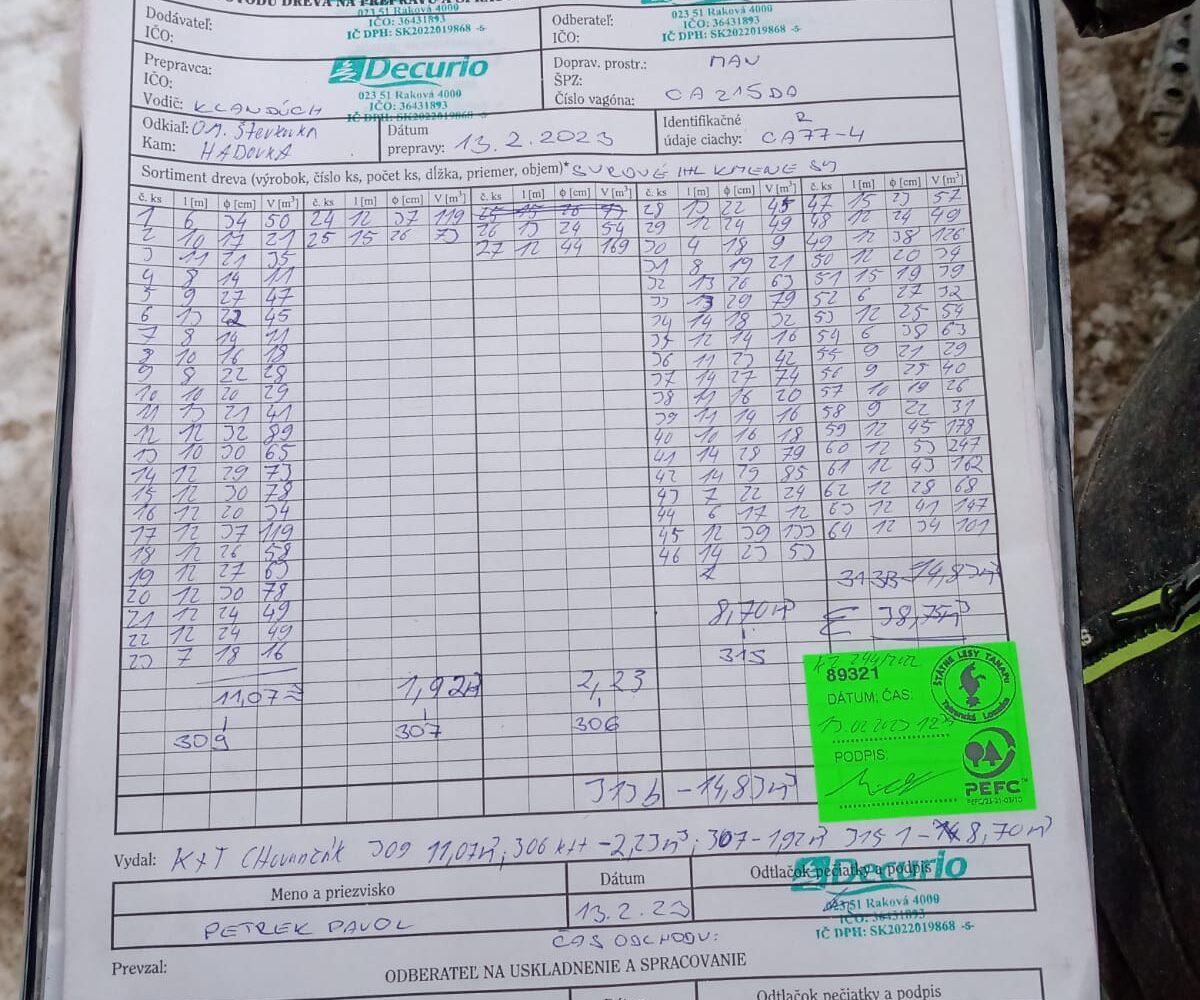 023 51 Raková 4000
Dodávateľ: IČO: 36431893
IČO: IČ DPH: SK2022019868 -5-
023 51 Raková 4000
Odberateľ: IČO: 36431893
IČO: IČ DPH: SK2022019868 -5-
Prepravca: Decurio
IČO: 023 51 Raková 4000
IČO: 36431893
Vodič: KLANDÚCH IČ DPH: SK2022019868 -5-
Doprav. prostr.: MAN
ŠPZ:
Číslo vagóna: CA 215DD
Odkiaľ: OM. Števkovka
Kam: HADOVKA
Dátum
prepravy: 13.2.2023
Identifikačné R
údaje ciachy: CA77-4
Sortiment dreva (výrobok, číslo ks, počet ks, dĺžka, priemer, objem)* SUROVÉ IHL KMENE SM
č. ks l [m] ϕ [cm] V [m³] č. ks l [m] ϕ [cm] V [m³] č. ks l [m] ϕ [cm] V [m³] č. ks l [m] ϕ [cm] V [m³] č. ks l [m] ϕ [cm] V [m³]
1 6 34 50 24 12 37 119 25 15 26 73 28 13 22 45 47 15 23 57
2 10 17 21 25 15 26 73 26 13 24 54 29 12 24 49 48 12 24 49
3 11 21 35 27 12 44 169 30 4 18 9 49 12 38 126
4 8 14 11 31 8 19 21 50 12 20 34
5 9 27 47 32 13 26 63 51 15 19 39
6 13 22 45 33 13 29 79 52 6 27 32
7 8 14 11 34 14 18 32 53 12 25 54
8 10 16 18 35 12 14 16 54 6 38 63
9 8 22 28 36 11 23 42 55 9 21 29
10 10 20 29 37 14 27 74 56 9 25 40
11 13 21 41 38 11 16 20 57 10 19 26
12 12 32 89 39 11 14 16 58 9 22 31
13 10 30 65 40 10 16 18 59 12 45 178
14 12 29 73 41 14 28 79 60 12 53 247
15 12 30 78 42 14 29 85 61 12 43 162
16 12 20 34 43 7 22 24 62 12 28 68
17 12 37 119 44 6 17 12 63 12 41 147
18 12 26 58 45 12 39 133 64 12 34 101
19 12 27 63 46 14 23 53
20 12 30 78 313B 14,83m³
21 12 24 49 8,70m³ Σ 38,75m³
22 12 24 49 315
23 7 18 16
11,07m³ 1,92m³ 2,23
309 307 306
89321
DÁTUM; ČAS:
13.02.2023
PODPIS:
ŠTÁTNE LESY TANAPU
Tatranská Lomnica
PEFC™
313b - 14,83m³
Vydal: K+T CHovančák 309 11,07m³; 306 k++ -2,23m³; 307-1,92m³ 315 1 - 8,70m³
Meno a priezvisko Dátum Odtlačok pečiatky a podpis
PETREK PAVOL 13.2.23
Decurio
023 51 Raková 4000
IČO: 36431893
IČ DPH: SK2022019868 -5-
ČAS ODCHODU:
Prevzal:
ODBERATEĽ NA USKLADNENIE A SPRACOVANIE
Odtlačok pečiatky a podpis